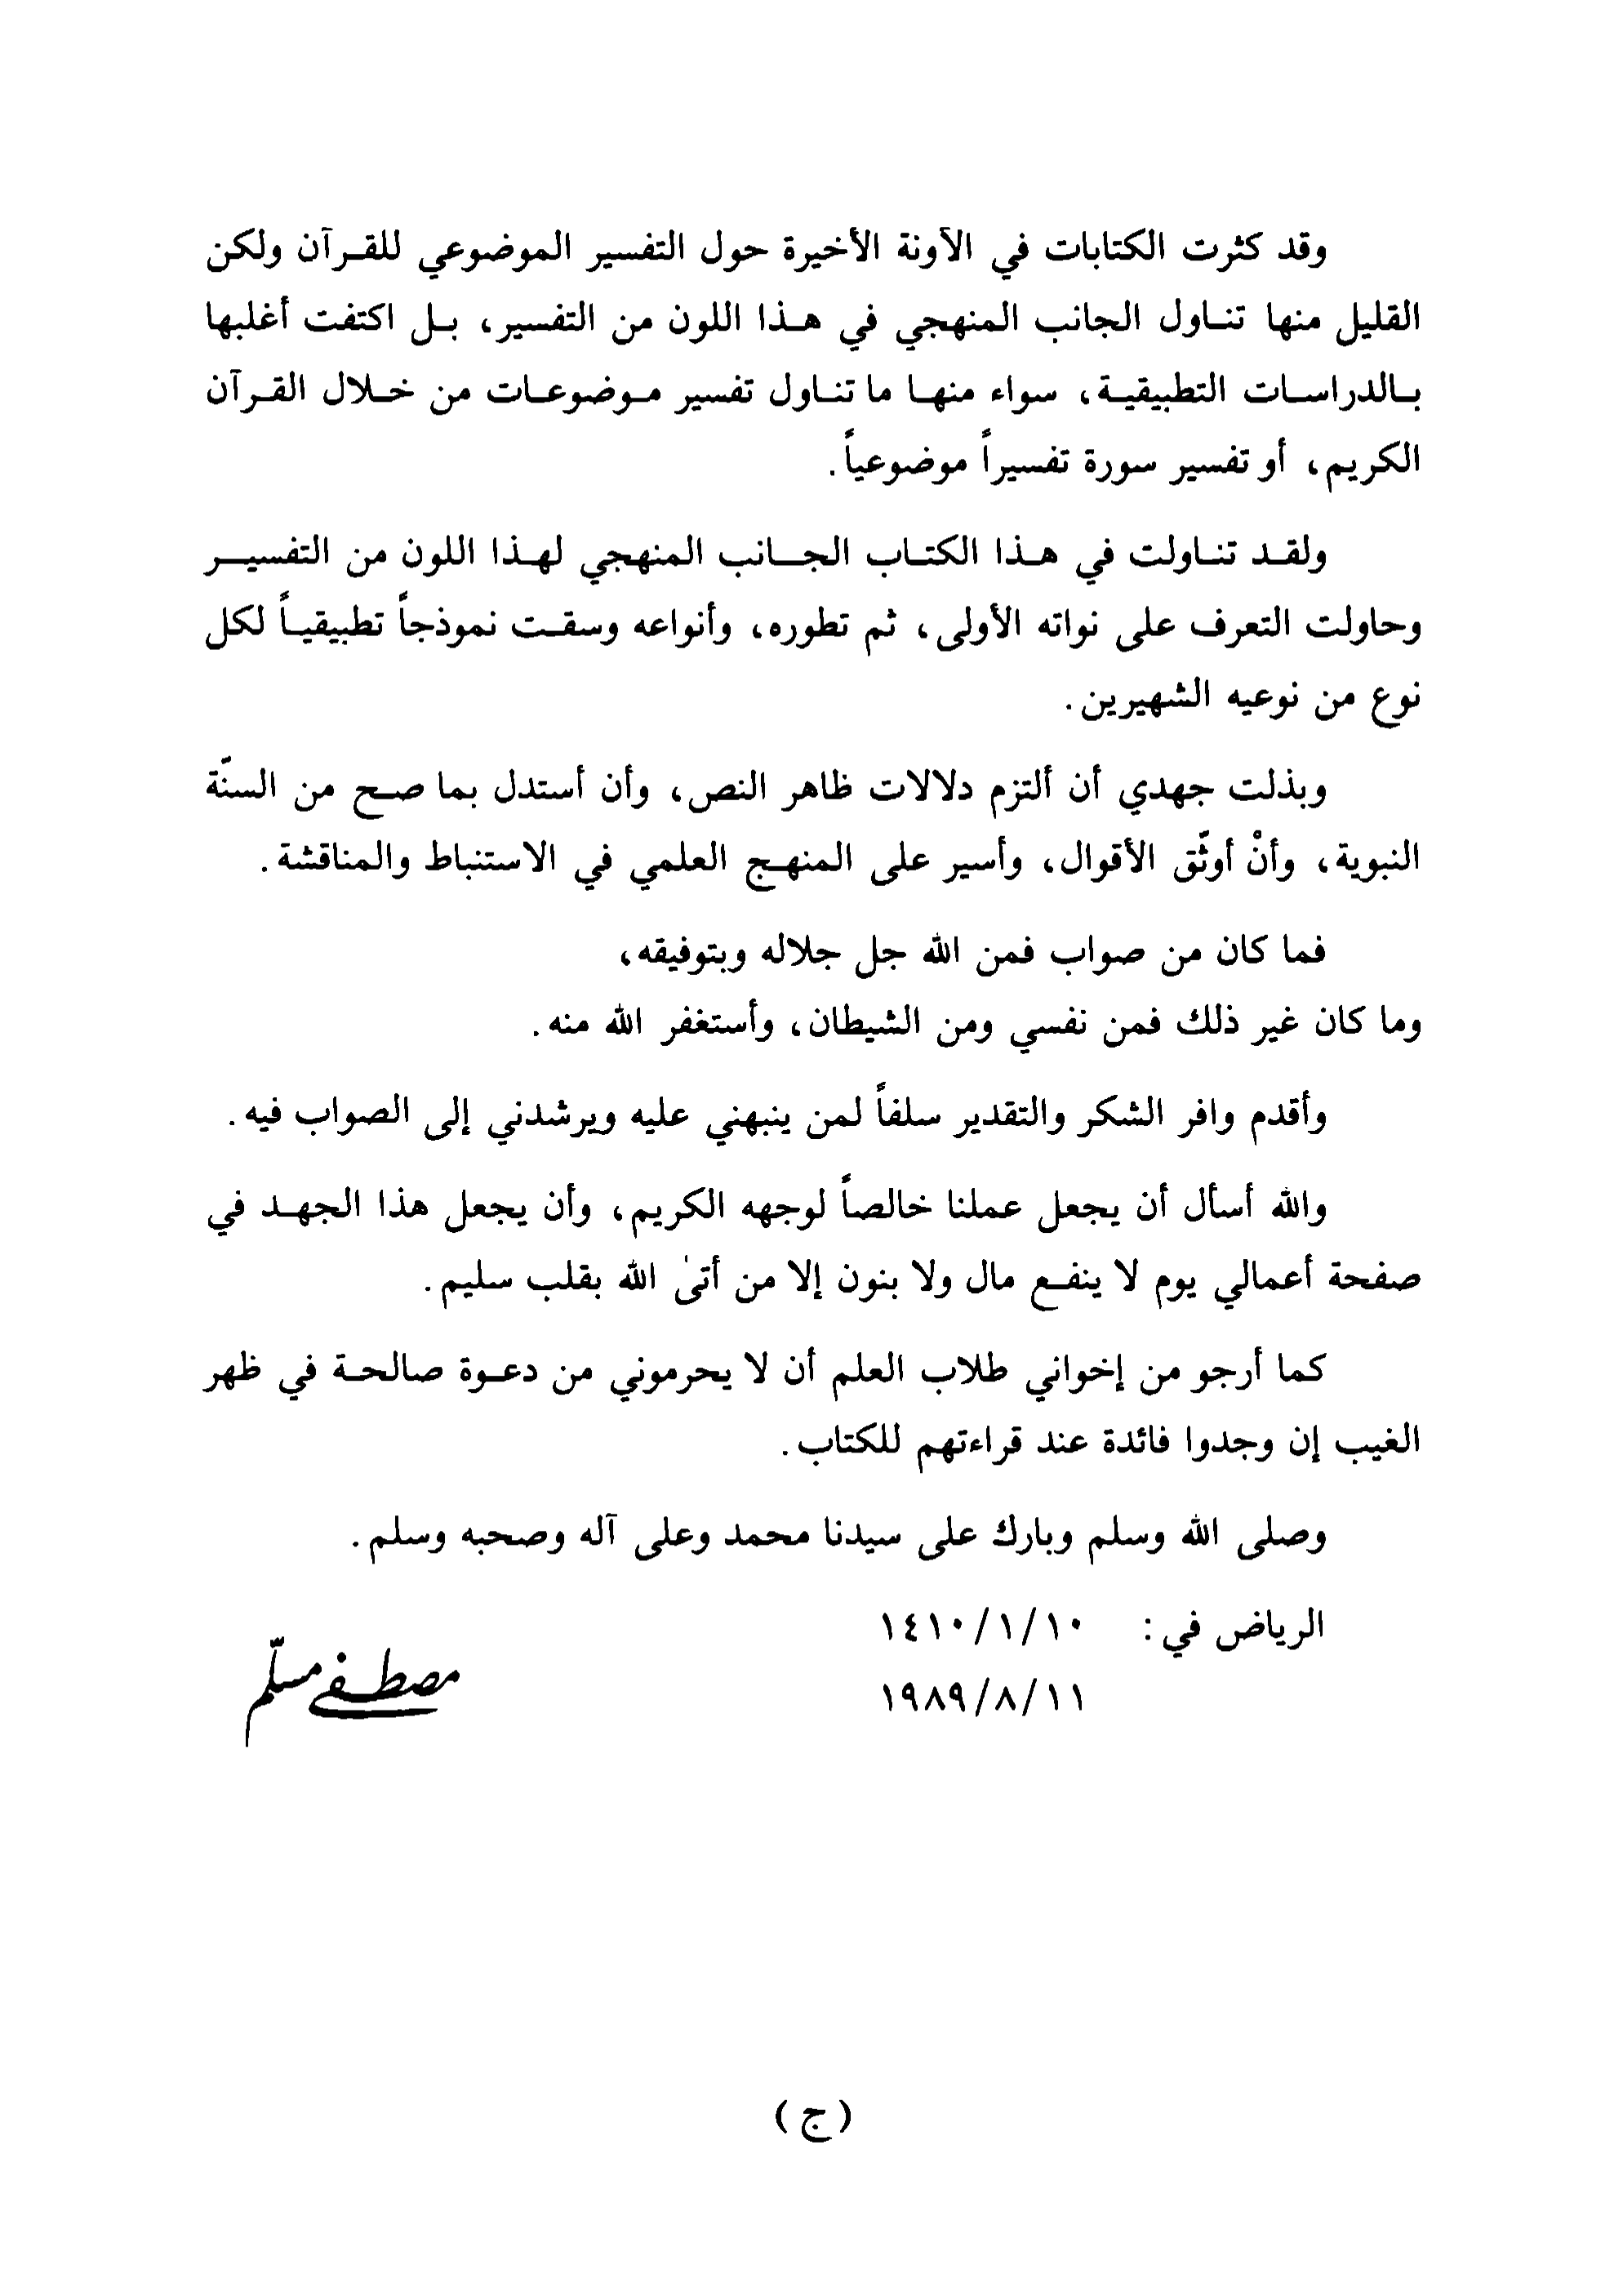 وقد كثرت الكتابات في الآونة الأخيرة حول التفسير الموضوعي للقرآن ولكن
القليل منها تناول الجانب المنهجي في هذا اللون من التفسير، بل اكتفت أغلبها
بالدراسات التطبيقية، سواء منها ما تناول تفسير موضوعات من خلال القرآن
الكريم، أو تفسير سورة تفسيراً موضوعياً.
ولقد تناولت في هذا الكتاب الجانب المنهجي لهذا اللون من التفسير
وحاولت التعرف على نواته الأولى، ثم تطوره، وأنواعه وسقت نموذجاً تطبيقياً لكل
نوع من نوعيه الشهيرين.
وبذلت جهدي أن ألتزم دلالات ظاهر النص، وأن أستدل بما صح من السنّة
النبوية، وأنْ أوثّق الأقوال، وأسير على المنهج العلمي في الاستنباط والمناقشة.
فما كان من صواب فمن الله جل جلاله وبتوفيقه،
وما كان غير ذلك فمن نفسي ومن الشيطان، وأستغفر الله منه.
وأقدم وافر الشكر والتقدير سلفاً لمن ينبهني عليه ويرشدني إلى الصواب فيه.
والله أسأل أن يجعل عملنا خالصاً لوجهه الكريم، وأن يجعل هذا الجهد في
صفحة أعمالي يوم لا ينفع مال ولا بنون إلا من أتىٰ الله بقلب سليم.
كما أرجو من إخواني طلاب العلم أن لا يحرموني من دعوة صالحة في ظهر
الغيب إن وجدوا فائدة عند قراءتهم للكتاب.
وصلى الله وسلم وبارك على سيدنا محمد وعلى آله وصحبه وسلم.
الرياض في: ١٤١٠/١/١٠
١٩٨٩/٨/١١
مصطفى مسلّم
(ج)